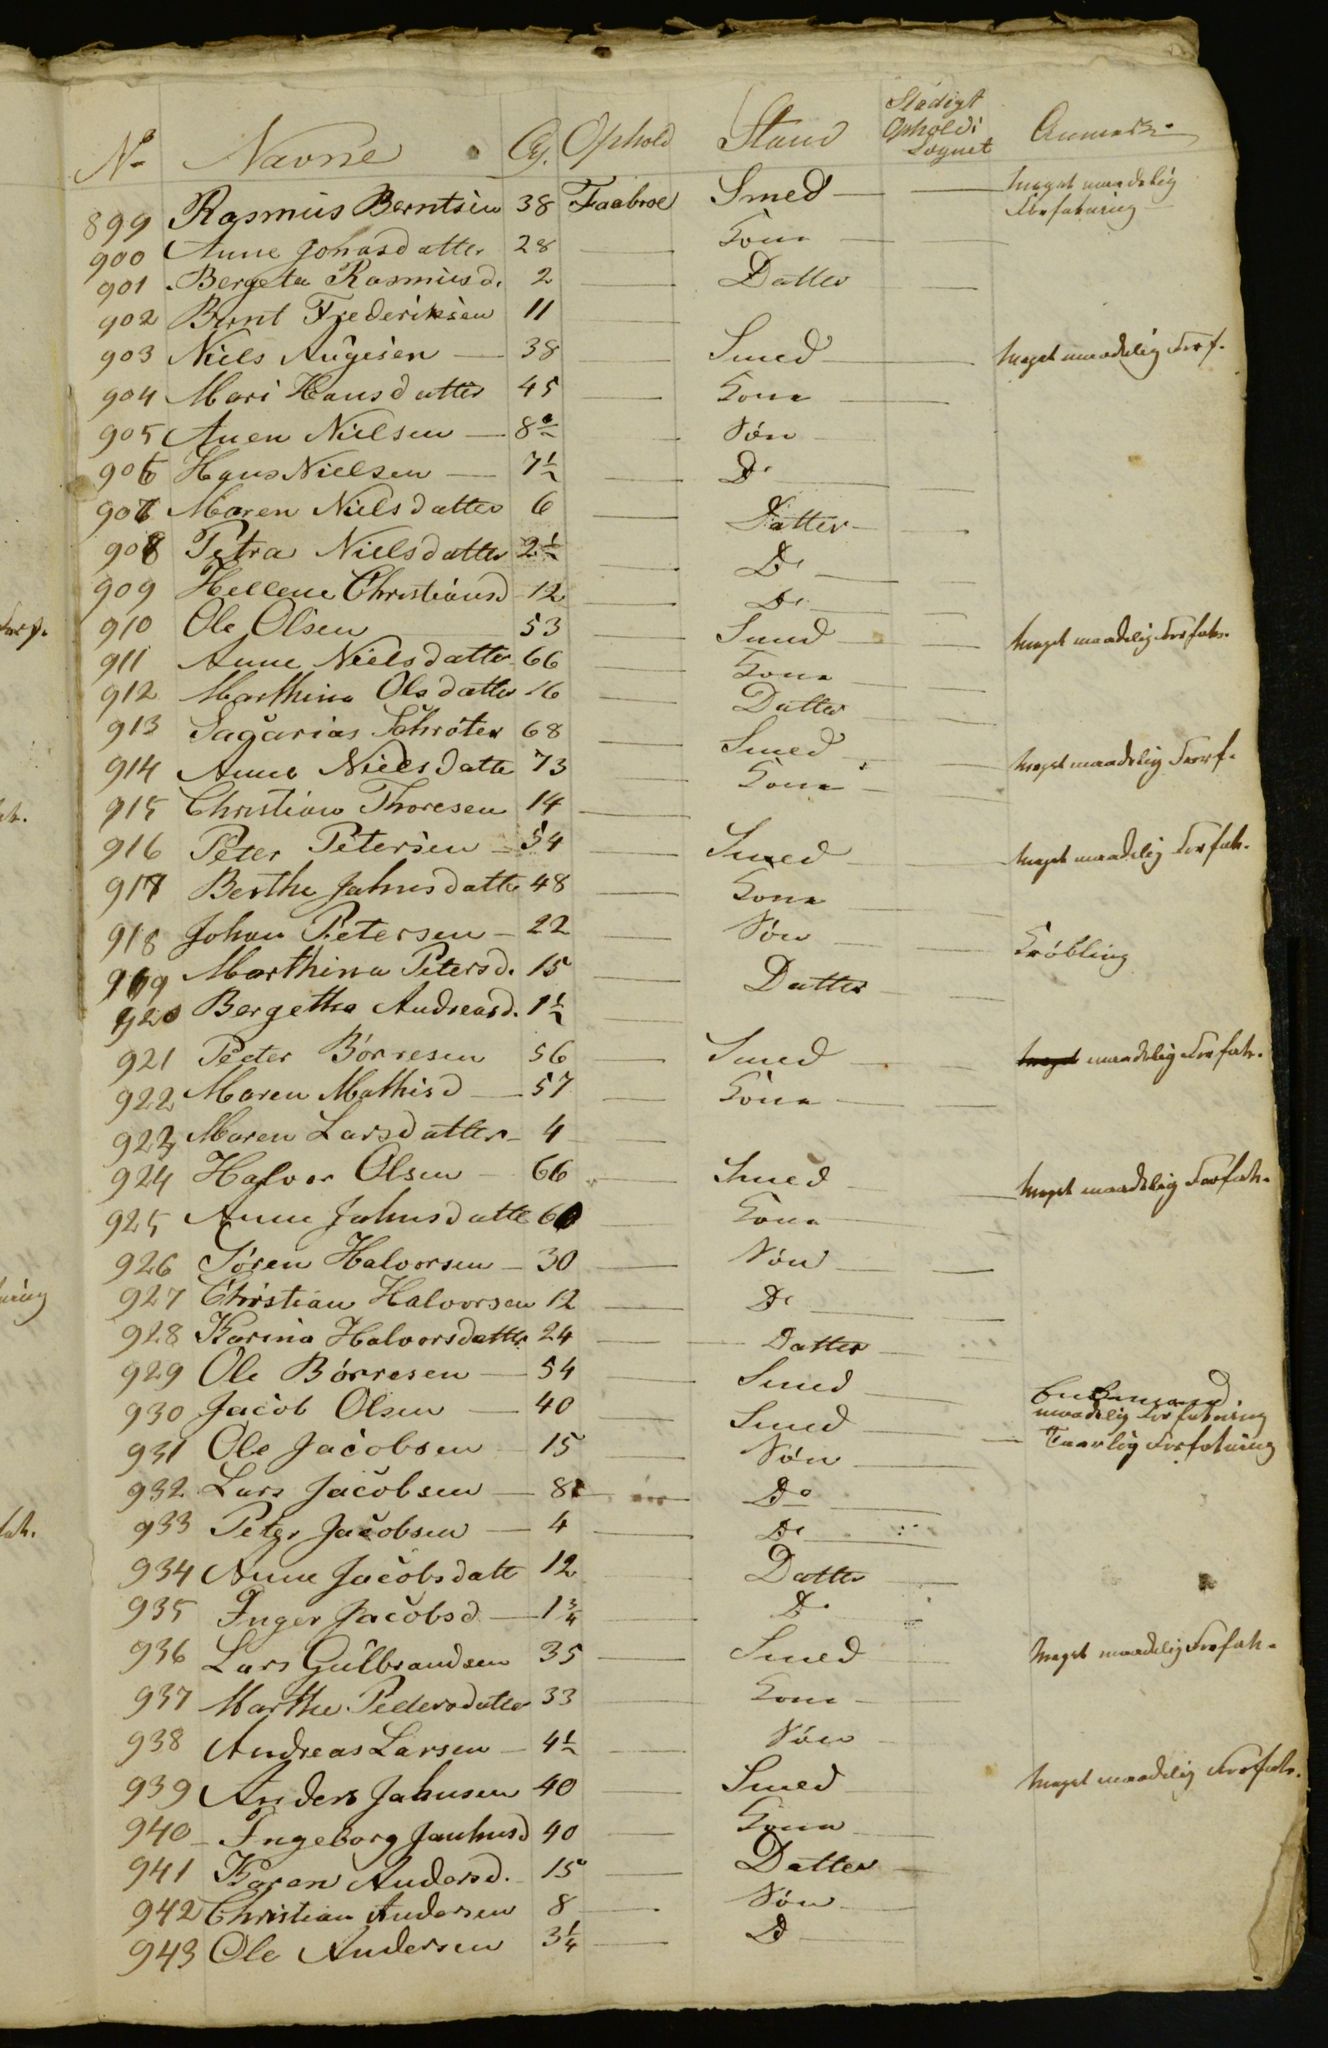 No Navne Al. Ophold Stand Stadigt Ophold i Sognet Anmærk.
899 Rasmus Berntsen 38 Faabroe Smed — — meget maadelig Forfatning
900 Anne Johasdatter 28 — Kone —
901 Bergeta Rasmusd. 2 — Datter —
902 Bernt Frederiksen 11 —
903 Niels Augesen — 38 — Smed — meget maadelig Forf.
904 Mari Hansdatter 45 — Kone —
905 Nielsen — 8 — Søn —
906 Hans Nielsen — 7½ — Do —
907 Maren Nielsdatter 6 — Datter —
908 Petra Nielsdatter 2½ — Do —
909 Hellene Christiansd 12 — Do —
910 Ole Olsen 53 — Smed — meget maadelig Forfatn.
911 Anne Nielsdatter 66 — Kone —
912 Marthina Olsdatter 16 — Datter —
913 Sacarias Schrøter 68 — Smed — meget maadelig Forf.
914 Anne Nielsdatte 73 — Kone —
915 Christian Thoresen 14 —
916 Peter Petersen — 54 — Smed — meget maadelig Forfatn.
917 Berthe Jahnsdatte 48 — Kone —
918 Johan Petersen — 22 — Søn — Krøbling
919 Marthina Petersd. 15 — Datter —
920 Bergetha Andreasd. 1½ —
921 Peter Børresen 56 — Smed — meget maadelig Forfatn.
922 Maren Mathisd — 57 — Kone —
923 Maren Larsdatter — 4 —
924 Halvor Olsen — 66 — Smed — meget maadelig Forfatn.
925 Anne Jahnsdatte 60 — Kone —
926 Søren Halvorsen — 30 — Søn —
927 Christian Halvorsen 12 — Do —
928 Karina Halvorsdatter 24 — Datter —
929 Ole Børresen — 54 — Smed — Enkemand maadelig Forfatning
930 Jacob Olsen — 40 — Smed — Taarlig Forfatning
931 Ole Jacobsen — 15 — Søn —
932 Lars Jacobsen — 8 — Do —
933 Peter Jacobsen — 4 — Do —
934 Anne Jacobsdatt 12 — Datter —
935 Inger Jacobsd — 1¾ — Do —
936 Lars Gulbrandsen 35 — Smed — Meget maadelig Forfatn.
937 Marthe Pedersdatter 33 — Kone —
938 Andreas Larsen — 4½ — Søn —
939 Anders Jahnsen 40 — Smed — Meget maadelig Forfatn.
940 Ingeborg Janhusd 40 — Kone —
941 Karen Andersd. — 15 — Datter —
942 Christian Andersen 8 — Søn —
943 Ole Andersen 3¼ — Do —